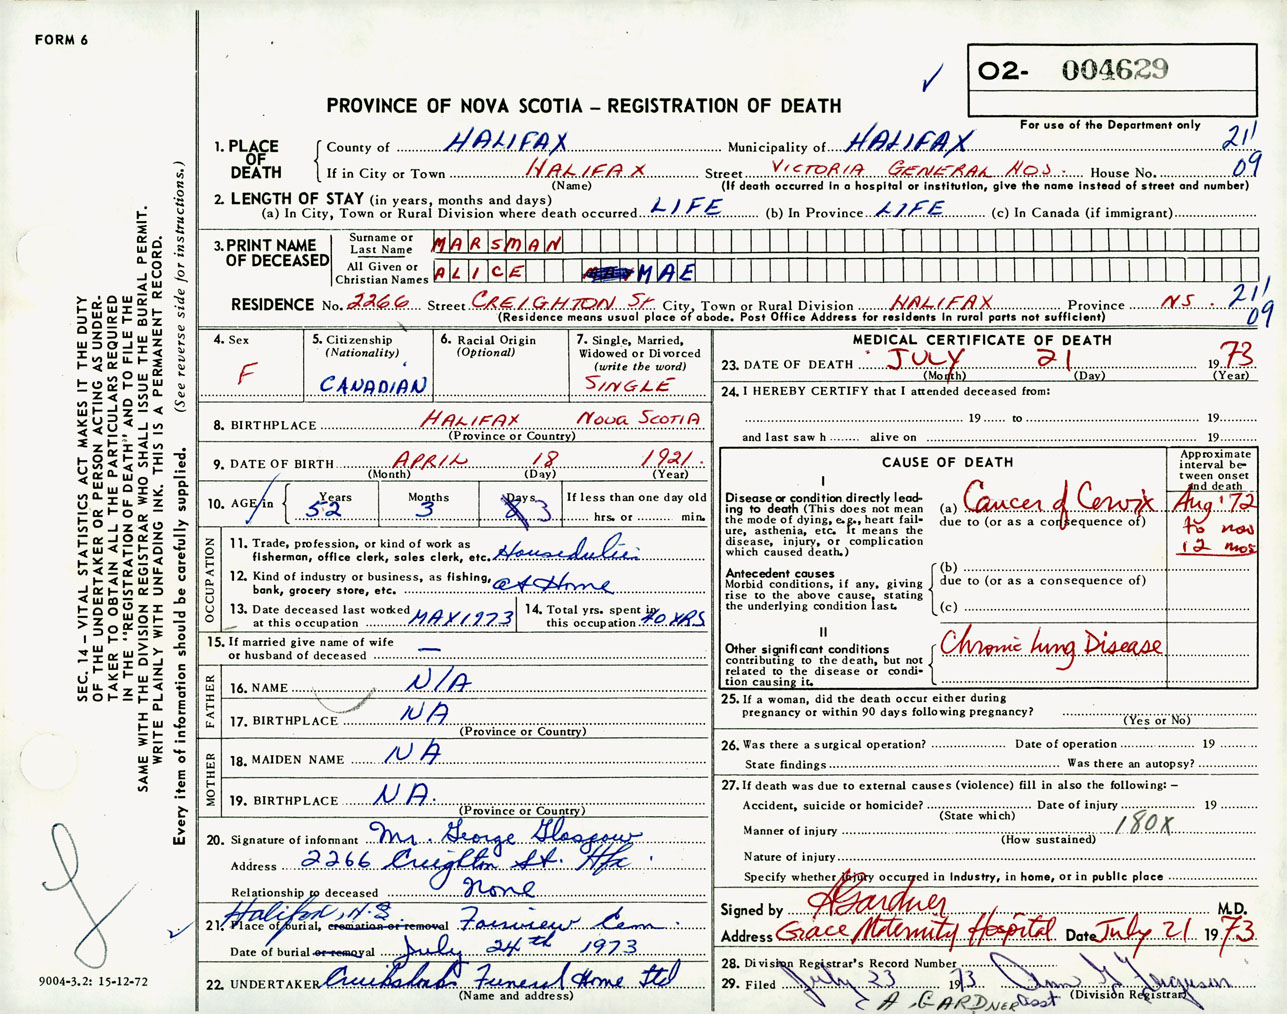 FORM 6
O2- 004629
PROVINCE OF NOVA SCOTIA – REGISTRATION OF DEATH
For use of the Department only
1. PLACE OF DEATH
County of HALIFAX Municipality of HALIFAX 21'
If in City or Town HALIFAX Street VICTORIA GENERAL HOS. House No. 09
(Name) (If death occurred in a hospital or institution, give the name instead of street and number)
2. LENGTH OF STAY (in years, months and days)
(a) In City, Town or Rural Division where death occurred LIFE (b) In Province LIFE (c) In Canada (if immigrant)
3. PRINT NAME OF DECEASED
Surname or Last Name MARSMAN
All Given or Christian Names ALICE MAE
RESIDENCE No. 2266 Street CREIGHTON St. City, Town or Rural Division HALIFAX Province NS. 21'
(Residence means usual place of abode. Post Office Address for residents in rural parts not sufficient) 09
4. Sex
F
5. Citizenship
(Nationality)
CANADIAN
6. Racial Origin
(Optional)
7. Single, Married,
Widowed or Divorced
(write the word)
SINGLE
8. BIRTHPLACE HALIFAX NOVA SCOTIA
(Province or Country)
9. DATE OF BIRTH APRIL 18 1921.
(Month) (Day) (Year)
10. AGE in
Years 52
Months 3
Days 3
If less than one day old
hrs. or min.
OCCUPATION
11. Trade, profession, or kind of work as
fisherman, office clerk, sales clerk, etc. Houseduties
12. Kind of industry or business, as fishing,
bank, grocery store, etc. at Home
13. Date deceased last worked
at this occupation MAY 1973
14. Total yrs. spent in
this occupation 40 YRS
15. If married give name of wife
or husband of deceased —
FATHER
16. NAME N/A
17. BIRTHPLACE NA
(Province or Country)
MOTHER
18. MAIDEN NAME NA
19. BIRTHPLACE NA.
(Province or Country)
20. Signature of informant Mr. George Glasgow
Address 2266 Creighton St. Hfx.
Relationship to deceased None
Halifax, N.S.
21. Place of burial, cremation or removal Fairview Cem.
Date of burial or removal July 24th 1973
22. UNDERTAKER Cruikshanks Funeral Home Ltd
(Name and address)
MEDICAL CERTIFICATE OF DEATH
23. DATE OF DEATH JULY 21 1973
(Month) (Day) (Year)
24. I HEREBY CERTIFY that I attended deceased from:
19 to 19
and last saw h alive on 19
CAUSE OF DEATH
Approximate
interval be-
tween onset
and death
I
Disease or condition directly lead-
ing to death (This does not mean
the mode of dying, e.g., heart fail-
ure, asthenia, etc. It means the
disease, injury, or complication
which caused death.)
(a) Cancer of Cervix
due to (or as a consequence of)
Aug '72
to now
12 mos
Antecedent causes
Morbid conditions, if any, giving
rise to the above cause, stating
the underlying condition last.
(b)
due to (or as a consequence of)
(c)
II
Other significant conditions
contributing to the death, but not
related to the disease or condi-
tion causing it.
Chronic Lung Disease
25. If a woman, did the death occur either during
pregnancy or within 90 days following pregnancy?
(Yes or No)
26. Was there a surgical operation? Date of operation 19
State findings Was there an autopsy?
27. If death was due to external causes (violence) fill in also the following: –
Accident, suicide or homicide? Date of injury 19
(State which)
Manner of injury 180X
(How sustained)
Nature of injury
Specify whether injury occurred in Industry, in home, or in public place
Signed by A Gardner M.D.
Address Grace Maternity Hospital Date July 21 1973
28. Division Registrar's Record Number
29. Filed July 23 1973 Ferguson
asst (Division Registrar)
A. GARDNER
SEC. 14 – VITAL STATISTICS ACT MAKES IT THE DUTY
OF THE UNDERTAKER OR PERSON ACTING AS UNDER-
TAKER TO OBTAIN ALL THE PARTICULARS REQUIRED
IN THE "REGISTRATION OF DEATH" AND TO FILE THE
SAME WITH THE DIVISION REGISTRAR WHO SHALL ISSUE THE BURIAL PERMIT.
WRITE PLAINLY WITH UNFADING INK. THIS IS A PERMANENT RECORD.
Every item of information should be carefully supplied. (See reverse side for instructions.)
9004-3.2: 15-12-72